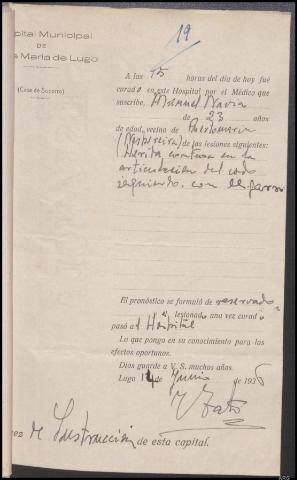 19
pital Municipal
DE
a María de Lugo
(Casa de Socorro)
A las 15 horas del día de hoy fué
curado en este Hospital por el Médico que
suscribe, Manuel Navia
de 23 años
de edad, vecino de Puertomarin
de las lesiones siguientes:
Herida contusa en la
articulación del codo
izquierdo, con desgarro
El pronóstico se formuló de reservado
el lesionado una vez curado
pasó al Hospital
Lo que pongo en su conocimiento para los
efectos oportunos.
Dios guarde a V. S. muchos años.
Lugo 14 de Junio de 1936
ez de Instrucción de esta capital.